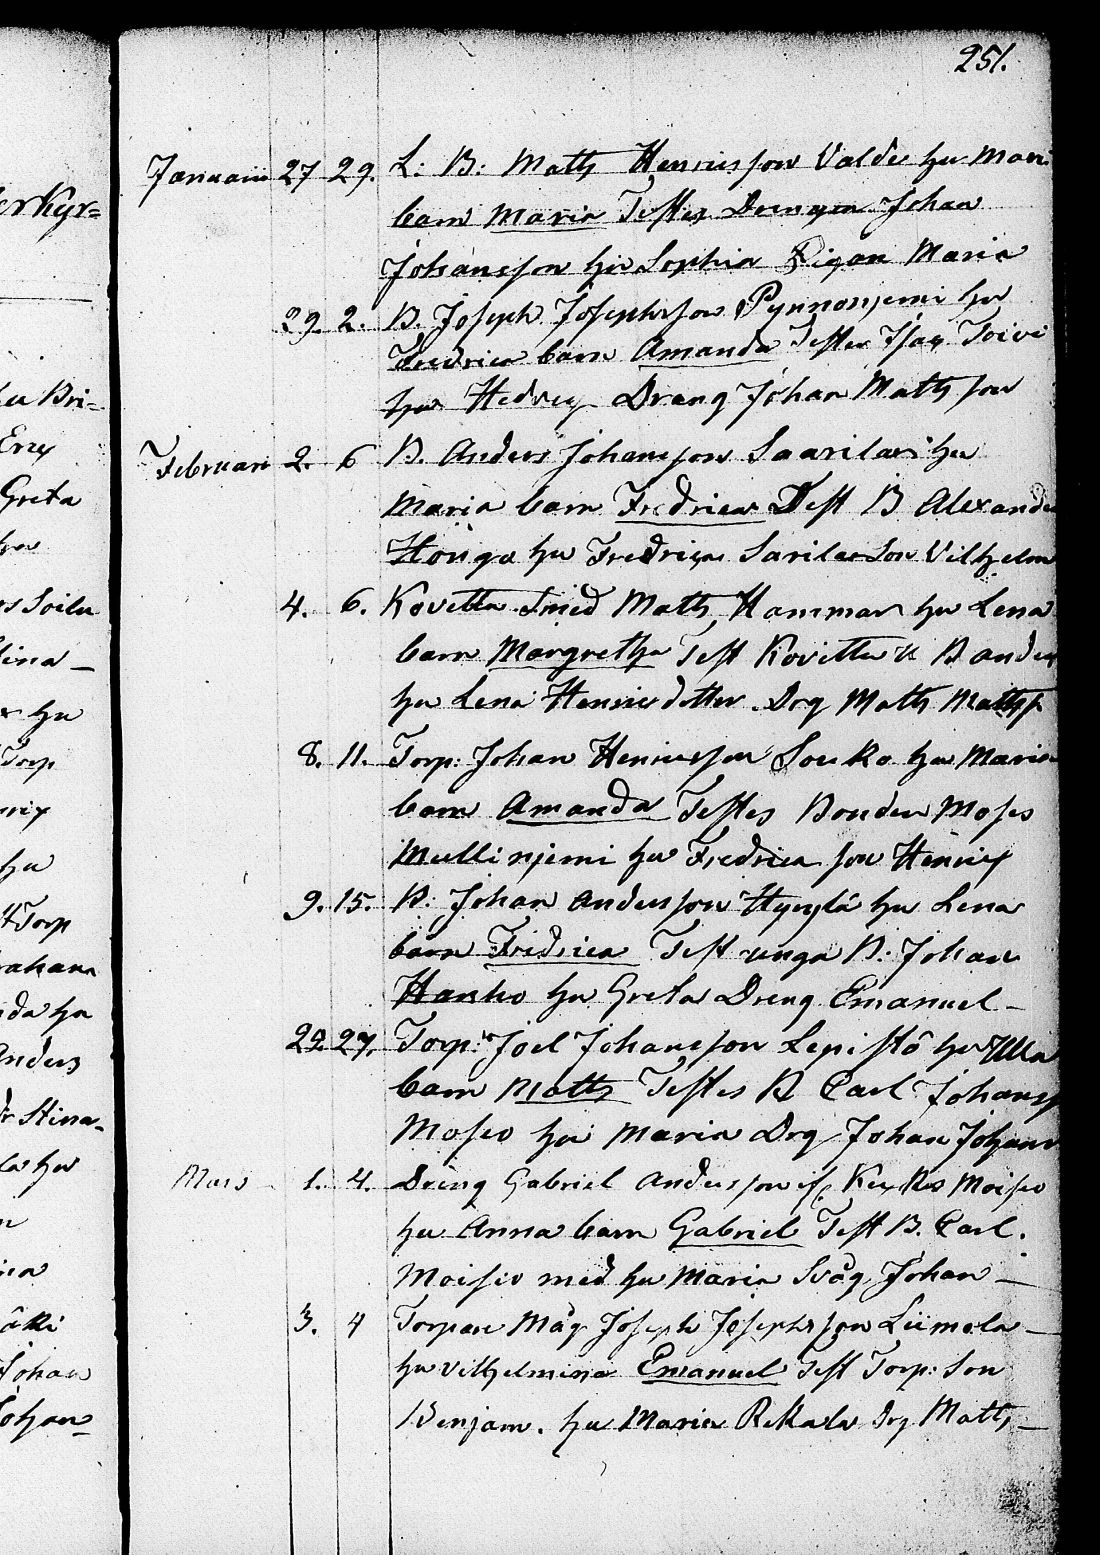 251.
Januarii 27 29. L: B: Matts Henricsson Valde hu Mari
barn Maria Testes Drengen Johan
Johansson hu Sophia Pigan Maria
29. 2. B. Joseph Josephsson Pynnönjemi hu
Fredrica barn Amanda Testes Isac Toivi
hu Hedvig Dräng Johan Matts son
Februari 2. 6 B. Anders Johansson Saarila hu
Maria barn Fredrica Test B Alexander
Hönga hu Fredrica Sarila Son Vilhelm
4. 6. Kovetta Smed Matts Hammar hu Lena
barn Margretha Test Kovitta B ander
hu Lena Henricsdotter Drg Matts Mattss
8. 11. Torp: Johan Henricsson Souko hu Maria
barn Amanda Testes Bonden Moses
Mullinjemi hu Fredrica son Henric
9. 15. B: Johan Andersson Hyrylä hu Lena
barn Fredrica Test unga B. Johan
Hanho hu Greta Dreng Emanuel –
22 27. Torp: Joel Johansson Lepistö hu Ulla
barn Matts Testes B Carl Johans
Moseo hu Maria Drg Johan Johans
Mars 1. 4. Dreng Gabriel Andersson Moiseo
hu Anna barn Gabriel Test B. Carl.
Moisio med hu Maria Svåg. Johan –
3. 4 Torpare Måg Joseph Josephsson Liimola –
hu Vilhelmina Emanuel Test Torp: Son
Benjam. hu Maria Rekala Drg Matts –
erkyr=
Bri=
Greta
Soilu
ina –
hu
Torp
hu
Torp
raham
da hu
Anders
Stina
la hu
Johan